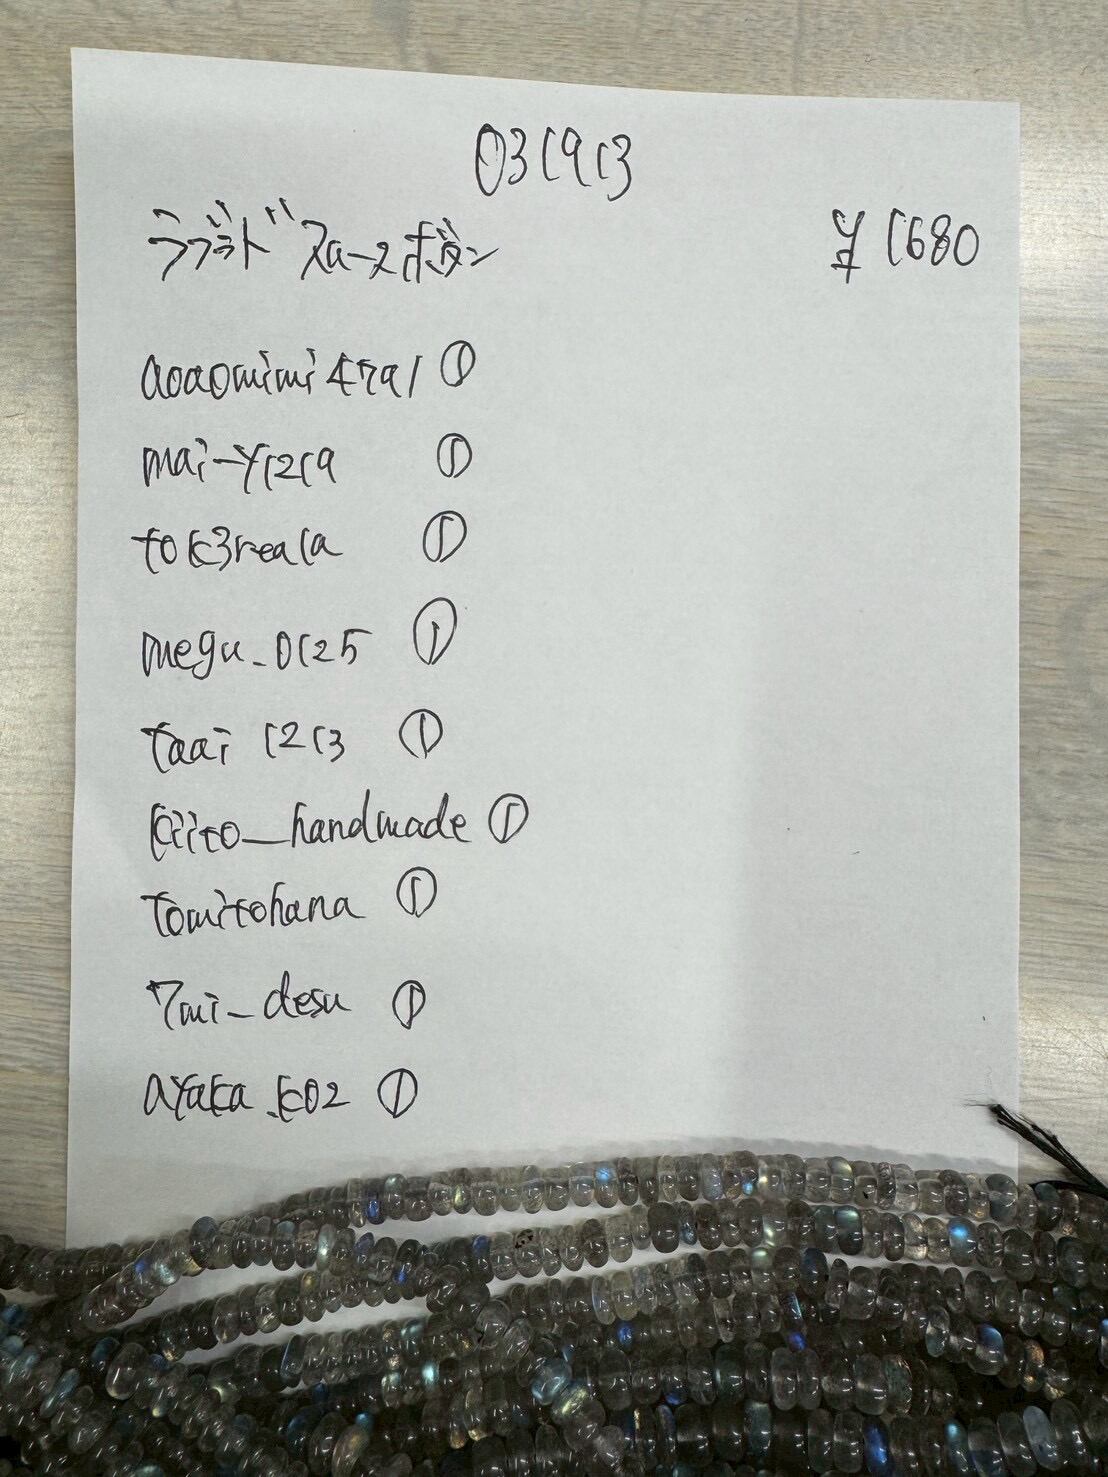 031913
ラブラド スムースボタン
¥1680
aoaomimi4791 ①
mai-y1219 ①
tok3rea1a ①
megu_0125 ①
taai1213 ①
kiito_handmade ①
tomitohana ①
7mi_desu ①
ayaka_k02 ①